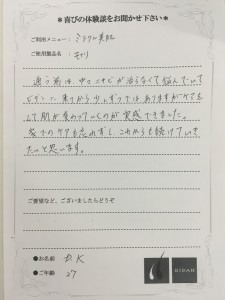 ＊喜びの体験談をお聞かせ下さい＊
ご利用メニュー：ミラクル美肌
ご使用製品名：キナリ
通う前は、中々ニキビが治らなくて悩んでいて
ビダンに来てから少しずつではありますがケアを
して肌が変わっていくのが実感できました。
家でのケアも忘れず、これからも続けていき
たいと思います。
ご要望など、ございましたらどうぞ
●お名前 D.K
●ご年齢 27
BIDAN